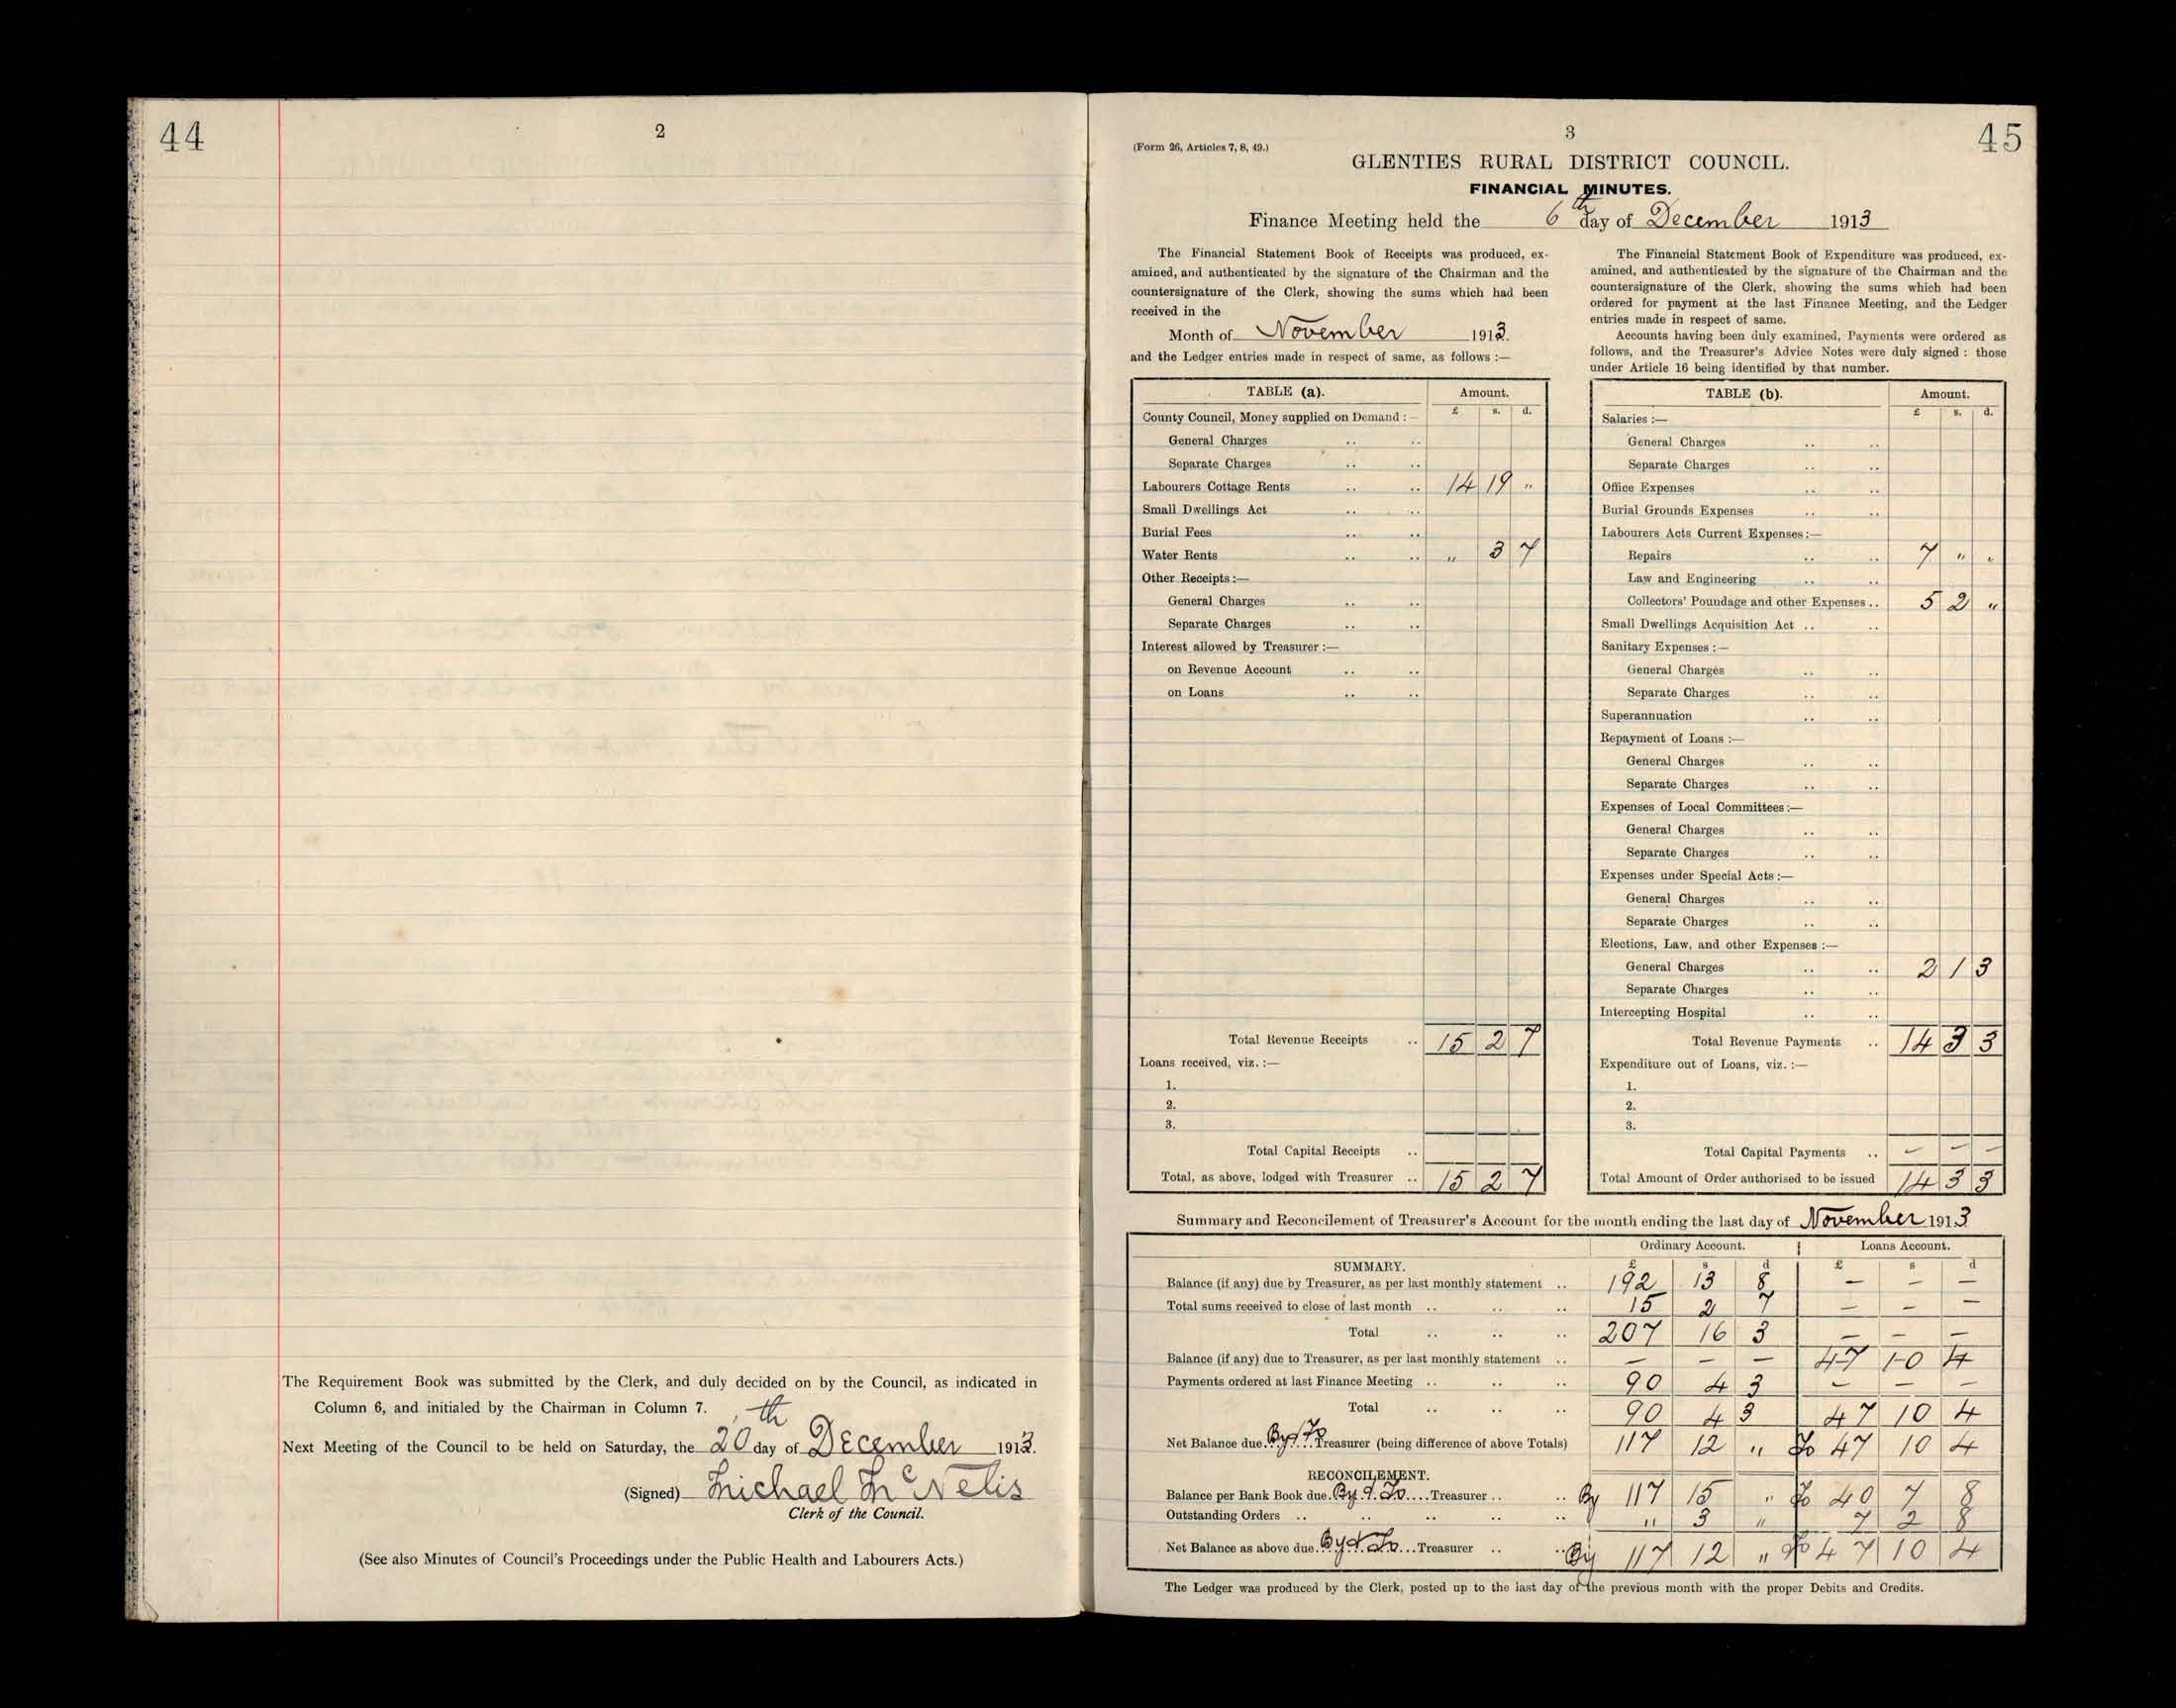 44
2
The Requirement Book was submitted by the Clerk, and duly decided on by the Council, as indicated in
Column 6, and initialed by the Chairman in Column 7.
Next Meeting of the Council to be held on Saturday, the 20th day of December 1913.
(Signed) Michael McNelis
Clerk of the Council.
(See also Minutes of Council's Proceedings under the Public Health and Labourers Acts.)
3
45
(Form 26, Articles 7, 8, 49.)
GLENTIES RURAL DISTRICT COUNCIL.
FINANCIAL MINUTES.
Finance Meeting held the 6th day of December 1913
The Financial Statement Book of Receipts was produced, ex-
amined, and authenticated by the signature of the Chairman and the
countersignature of the Clerk, showing the sums which had been
received in the
Month of November 1913.
and the Ledger entries made in respect of same, as follows :—
TABLE (a). Amount.
£ s. d.
County Council, Money supplied on Demand :—
General Charges .. ..
Separate Charges .. ..
Labourers Cottage Rents .. .. 14 19 "
Small Dwellings Act .. ..
Burial Fees .. ..
Water Rents .. .. " 3 7
Other Receipts :—
General Charges .. ..
Separate Charges .. ..
Interest allowed by Treasurer :—
on Revenue Account .. ..
on Loans .. ..
Total Revenue Receipts .. 15 2 7
Loans received, viz. :—
1.
2.
3.
Total Capital Receipts ..
Total, as above, lodged with Treasurer .. 15 2 7
The Financial Statement Book of Expenditure was produced, ex-
amined, and authenticated by the signature of the Chairman and the
countersignature of the Clerk, showing the sums which had been
ordered for payment at the last Finance Meeting, and the Ledger
entries made in respect of same.
Accounts having been duly examined, Payments were ordered as
follows, and the Treasurer's Advice Notes were duly signed : those
under Article 16 being identified by that number.
TABLE (b). Amount.
£ s. d.
Salaries :—
General Charges .. ..
Separate Charges .. ..
Office Expenses .. ..
Burial Grounds Expenses .. ..
Labourers Acts Current Expenses :—
Repairs .. .. 7 " "
Law and Engineering .. ..
Collectors' Poundage and other Expenses .. 5 2 "
Small Dwellings Acquisition Act .. ..
Sanitary Expenses :—
General Charges .. ..
Separate Charges .. ..
Superannuation .. ..
Repayment of Loans :—
General Charges .. ..
Separate Charges .. ..
Expenses of Local Committees :—
General Charges .. ..
Separate Charges .. ..
Expenses under Special Acts :—
General Charges .. ..
Separate Charges .. ..
Elections, Law, and other Expenses :—
General Charges .. .. 2 1 3
Separate Charges .. ..
Intercepting Hospital .. ..
Total Revenue Payments .. 14 3 3
Expenditure out of Loans, viz. :—
1.
2.
3.
Total Capital Payments .. — — —
Total Amount of Order authorised to be issued 14 3 3
Summary and Reconcilement of Treasurer's Account for the month ending the last day of November 1913
Ordinary Account. Loans Account.
£ s d £ s d
SUMMARY.
Balance (if any) due by Treasurer, as per last monthly statement .. 192 13 8 — — —
Total sums received to close of last month .. .. .. 15 2 7 — — —
Total .. .. .. 207 16 3 — — —
Balance (if any) due to Treasurer, as per last monthly statement .. — — — 47 10 4
Payments ordered at last Finance Meeting .. .. .. 90 4 3 — — —
Total .. .. .. 90 4 3 47 10 4
Net Balance due By & To Treasurer (being difference of above Totals) 117 12 " To 47 10 4
RECONCILEMENT.
Balance per Bank Book due By & To Treasurer .. .. By 117 15 " To 40 7 8
Outstanding Orders .. .. .. .. .. " 3 " 7 2 8
Net Balance as above due By & To Treasurer .. .. By 117 12 " To 47 10 4
The Ledger was produced by the Clerk, posted up to the last day of the previous month with the proper Debits and Credits.